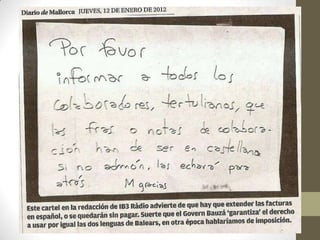 Diario de Mallorca JUEVES, 12 DE ENERO DE 2012
Por favor
informar a todos los
Colaboradores, tertulianos, que
las fras o notas de colabora-
ción han de ser en castellano
Si no admón, las echará para
atrás. M gracias
Este cartel en la redacción de IB3 Ràdio advierte de que hay que extender las facturas
en español, o se quedarán sin pagar. Suerte que el Govern Bauzá 'garantiza' el derecho
a usar por igual las dos lenguas de Balears, en otra época hablaríamos de imposición.